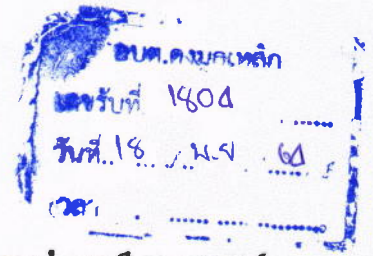 อบต.ดงมูลเหล็ก
เลขรับที่ 1804
วันที่ 18 พ.ย 64
เวลา